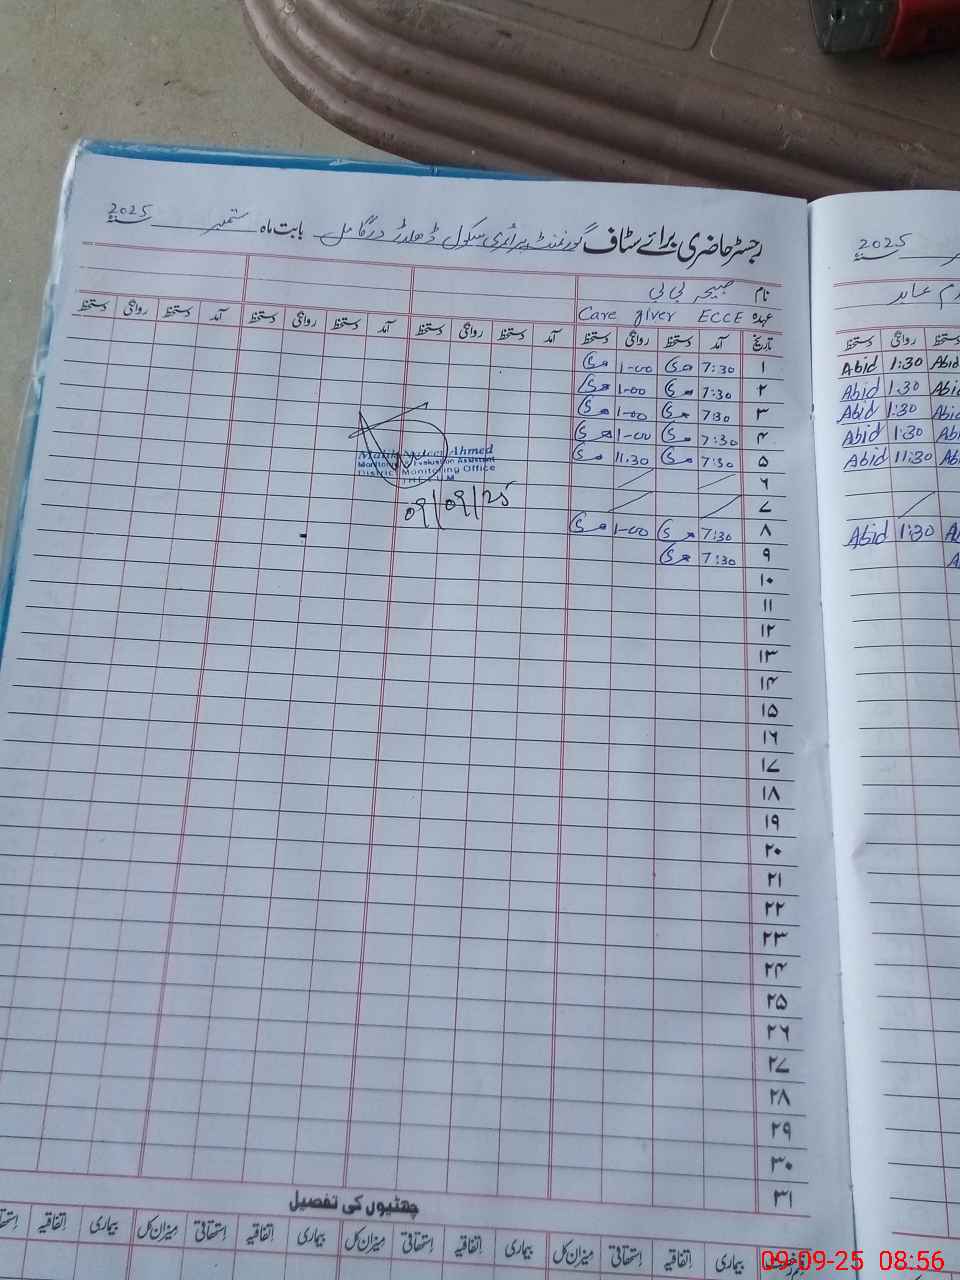 رجسٹر حاضری برائے سٹاف گورنمنٹ پرائمری سکول بابت ماہ ستمبر 2025 سنہ
نام صبیحہ بی بی
عہدہ Care giver ECCE
تاریخ آمد دستخط روانگی دستخط آمد دستخط روانگی دستخط آمد دستخط روانگی دستخط آمد دستخط روانگی دستخط
۱ 7:30 1-00
۲ 7:30 1-00
۳ 7:30 1-00
۴ 7:30 1-00
۵ 7:30 11.30
۶
۷
۸ 7:30 1-00
۹ 7:30
۱۰
۱۱
۱۲
۱۳
۱۴
۱۵
۱۶
۱۷
۱۸
۱۹
۲۰
۲۱
۲۲
۲۳
۲۴
۲۵
۲۶
۲۷
۲۸
۲۹
۳۰
۳۱
Ahmed
Monitoring & Evaluation Assistant
District Monitoring Office
JHELUM
09/09/25
چھٹیوں کی تفصیل
بیماری اتفاقیہ استحقاقی میزان کل بیماری اتفاقیہ استحقاقی میزان کل بیماری اتفاقیہ استحقاقی میزان کل بیماری اتفاقیہ
2025 سنہ
عابد
دستخط روانگی دستخط
Abid 1:30 Abid
Abid 1:30 Abid
Abid 1:30 Abid
Abid 1:30 Abid
Abid 11:30 Abid
Abid 1:30
09-09-25 08:56